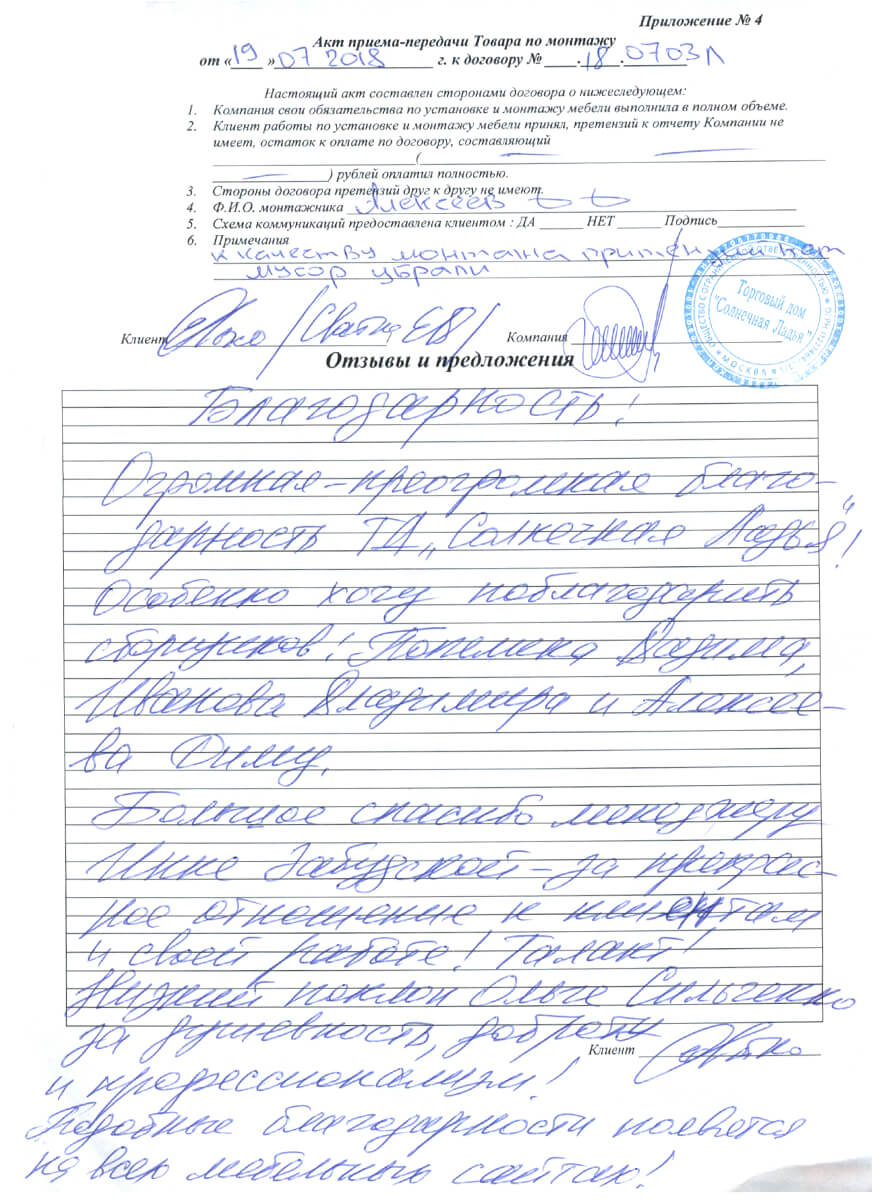 Приложение № 4
Акт приема-передачи Товара по монтажу
от «19» 07 2018 г. к договору № .18.0703Л
Настоящий акт составлен сторонами договора о нижеследующем:
1. Компания свои обязательства по установке и монтажу мебели выполнила в полном объеме.
2. Клиент работы по установке и монтажу мебели принял, претензий к отчету Компании не
имеет, остаток к оплате по договору, составляющий
(
) рублей оплатил полностью.
3. Стороны договора претензий друг к другу не имеют.
4. Ф.И.О. монтажника Алексеев
5. Схема коммуникаций предоставлена клиентом : ДА НЕТ Подпись
6. Примечания
к качеству монтажа
мусор убрали
Клиент
Компания
ОБЩЕСТВО С ОГРАНИЧЕННОЙ ОТВЕТСТВЕННОСТЬЮ
Торговый дом
"Солнечная Ладья"
МОСКВА
Отзывы и предложения
Благодарность!
Огромная-преогромная благо-
дарность ТД „Солнечная Ладья“!
Особенно хочу поблагодарить
сборщиков! Вадима,
Иванова Владимира и Алексее-
ва Диму.
Большое спасибо менеджеру
Инне Забудской – за прекрас-
ное отношение к клиентам
и своей работе! Талант!
Низкий поклон Ольге Сильченко
за душевность, доброту
Клиент
и профессионализм!
Подобные благодарности появятся
на всех мебельных сайтах!